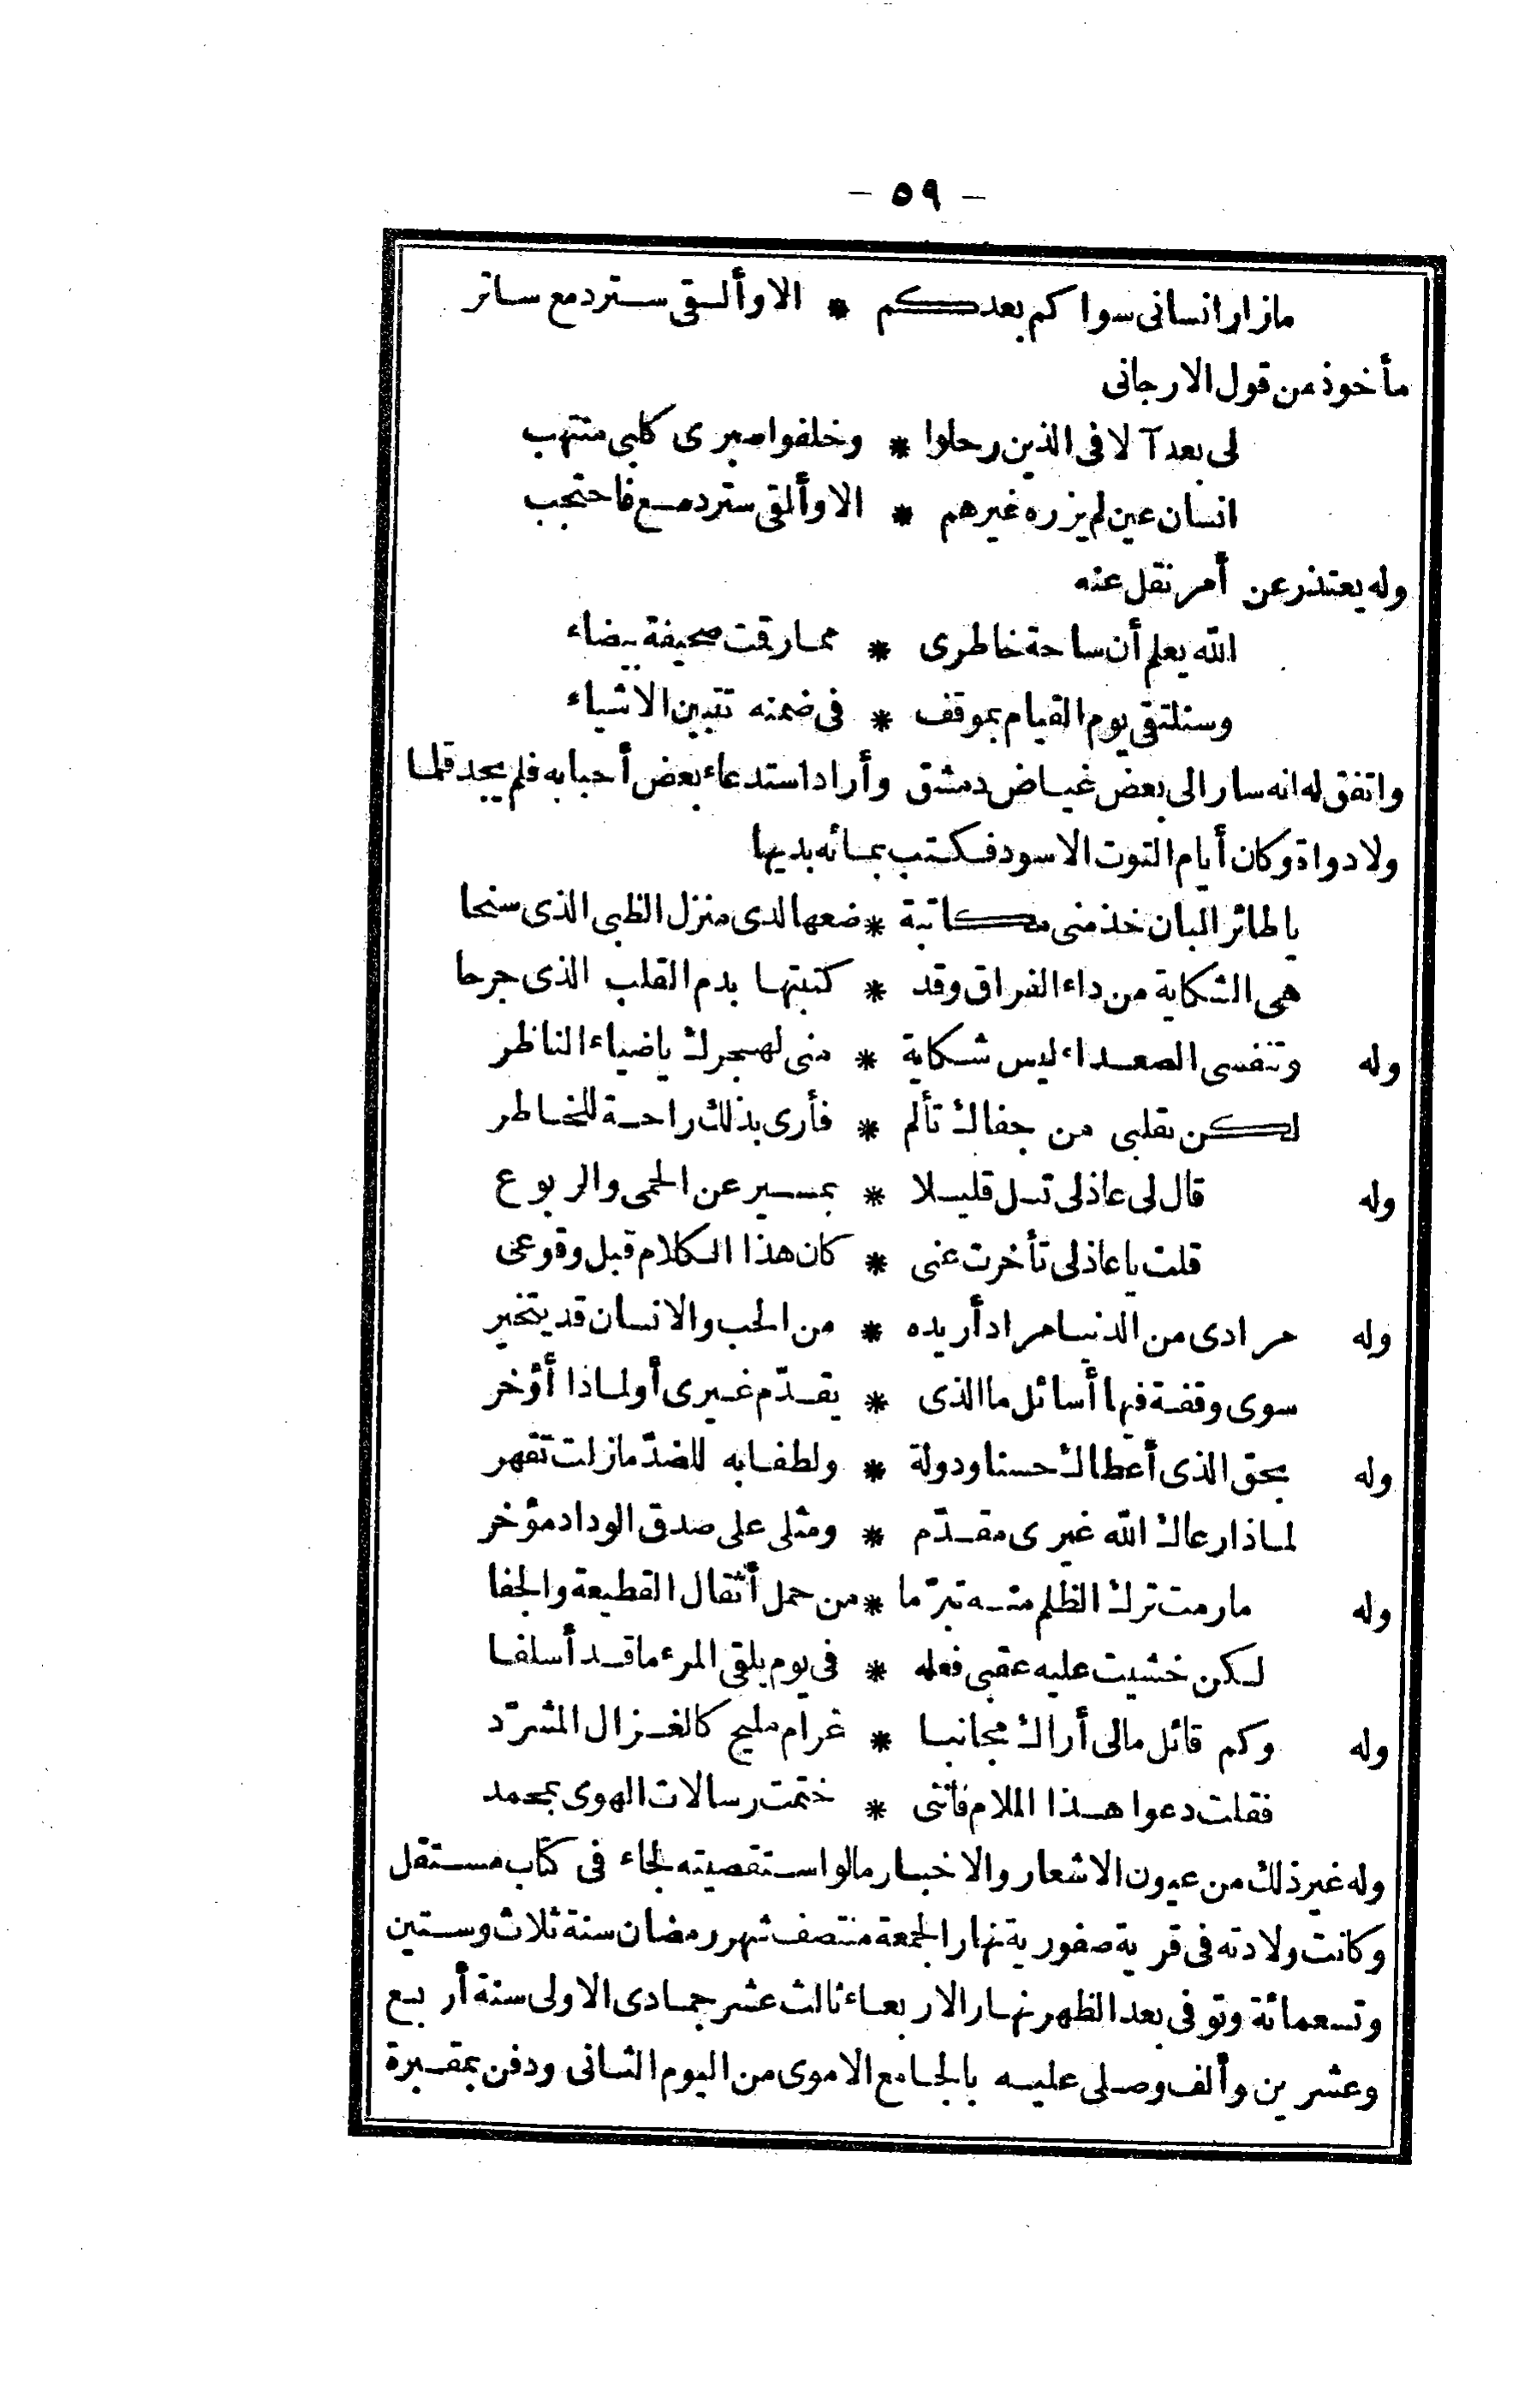 - ٥٩ -
مازار انسانى سواكم بعدكم * الا وألقى ستر دمع ساتر
مأخوذ من قول الارجانى
لى بعد آلافى الذين رحلوا * وخلفوا صبرى كلبى منتهب
انسان عين لم يزره غيرهم * الا وألقى ستر دمع فاحتجب
وله يعتذر عن أمر نقل عنه
الله يعلم أن ساحة خاطرى * مما رقت صحيفة بيضاء
وسنلتقى يوم القيام بموقف * فى ضمنه تتبين الاشياء
واتفق له انه سار الى بعض غياض دمشق وأراد استدعاء بعض أحبابه فلم يجد قلما
ولا دواة وكان أيام التوت الاسود فكتب بمائه بديها
يا طائر البان خذ منى مكاتبة * ضعها لدى منزل الظبى الذى سنحا
هى الشكاية من داء الفراق وقد * كتبتها بدم القلب الذى جرحا
وله وتنفسى الصعداء ليس شكاية * منى لهجرك يا ضياء الناظر
لكن بقلبى من جفاك تألم * فأرى بذلك راحة للخاطر
وله قال لى عاذلى تسل قليلا * بمسير عن الحمى والربوع
قلت يا عاذلى تأخرت عنى * كان هذا الكلام قبل وقوعى
وله مرادى من الدنيا مراد أريده * من الحب والانسان قد يتخير
سوى وقفة فيها أسائل ما الذى * يقدّم غيرى أو لماذا أؤخر
وله بحق الذى أعطاك حسنا ودولة * ولطفا به للضدّ مازلت تقهر
لماذا رعاك الله غيرى مقدّم * ومثلى على صدق الوداد مؤخر
وله مارمت ترك الظلم منه تبرّما * من حمل أثقال القطيعة والجفا
لكن خشيت عليه عقبى فعله * فى يوم يلقى المرء ما قد أسلفا
وله وكم قائل مالى أراك مجانبا * غرام مليح كالغزال المشرّد
فقلت دعوا هذا الملام فاننى * ختمت رسالات الهوى بمحمد
وله غير ذلك من عيون الاشعار والاخبار مالو استقصيته لجاء فى كتاب مستقل
وكانت ولادته فى قرية صفورية نهار الجمعة منتصف شهر رمضان سنة ثلاث وستين
وتسعمائة وتوفى بعد الظهر نهار الاربعاء ثالث عشر جمادى الاولى سنة أربع
وعشرين وألف وصلى عليه بالجامع الاموى من اليوم الثانى ودفن بمقبرة